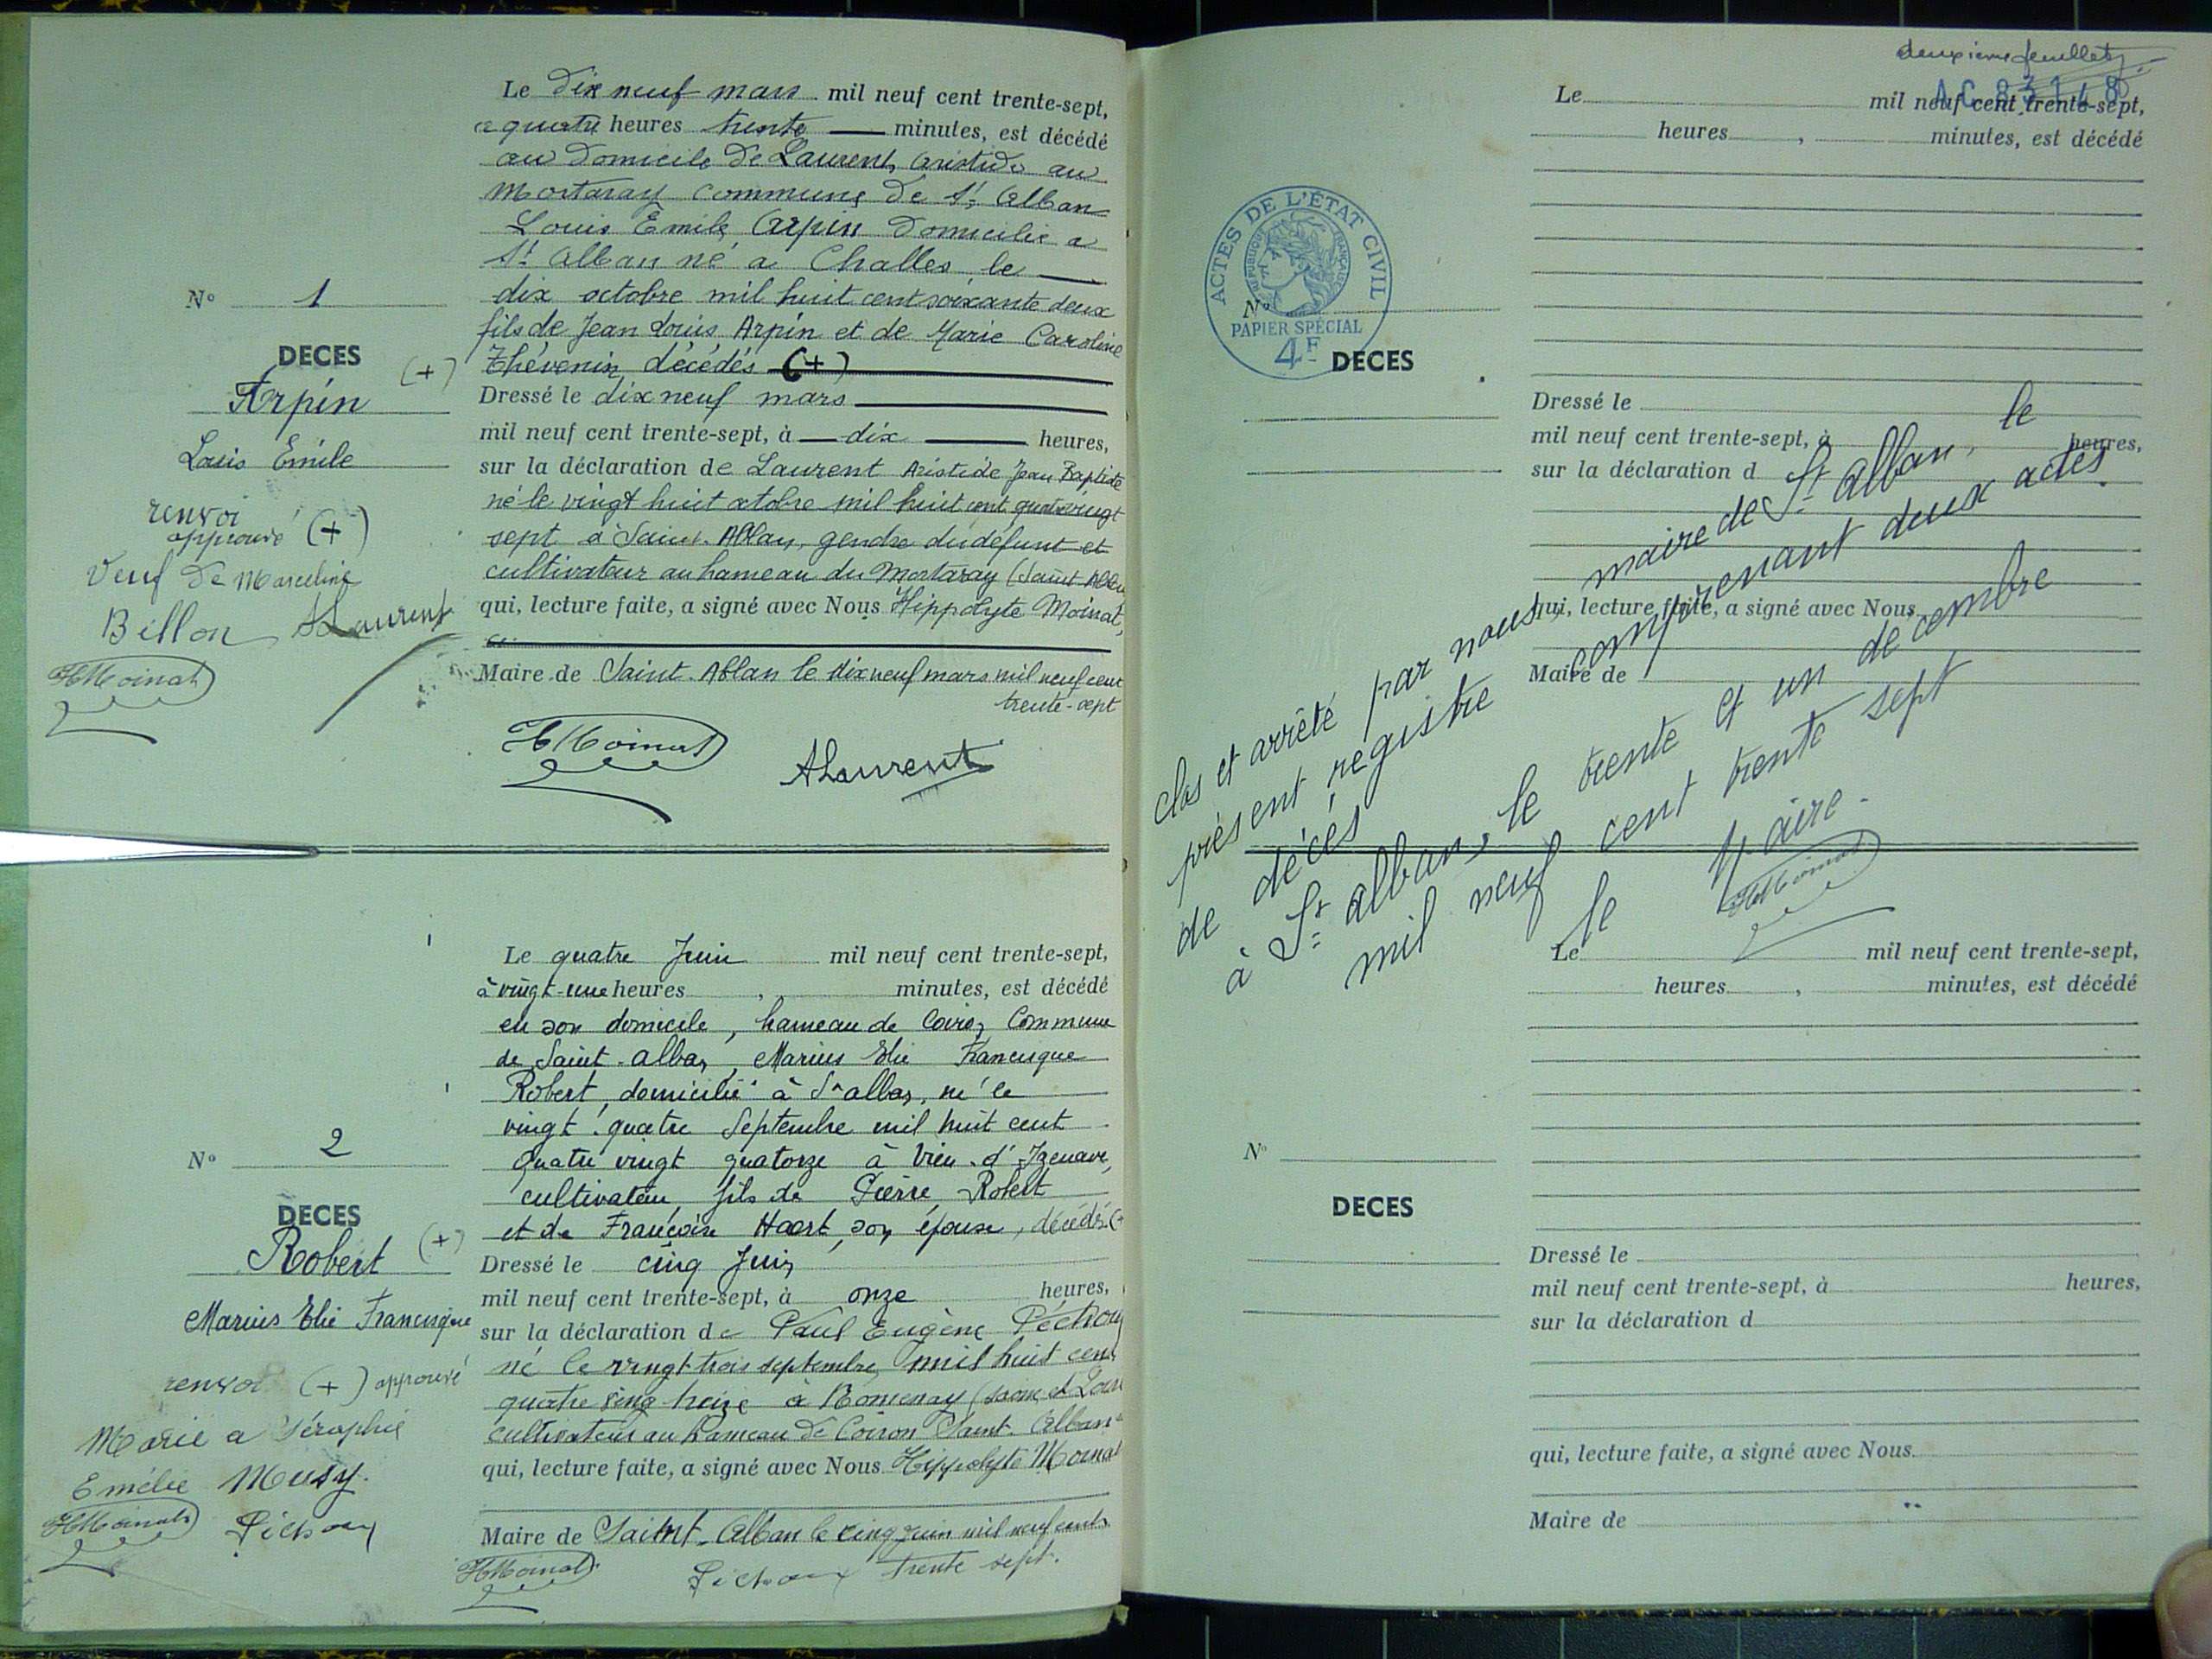 Le dix neuf mars mil neuf cent trente-sept,
a quatre heures trente minutes, est décédé
au domicile de Laurent aristide au
Mortaray commune de St Alban
Louis Emile Arpin domicilié a
St Alban né a Challes le
dix octobre mil huit cent soixante deux
fils de Jean Louis Arpin et de Marie Caroline
Thévenin décédés (+)
Dressé le dix neuf mars
mil neuf cent trente-sept, à dix heures,
sur la déclaration de Laurent Aristide Jean Baptiste
né le vingt huit octobre mil huit cent quatre vingt
sept à Saint-Alban, gendre du défunt et
cultivateur au hameau du Mortaray (Saint Alban
qui, lecture faite, a signé avec Nous Hippolyte Moinat,
Maire de Saint-Alban le dix neuf mars mil neuf cent
trente-sept
HMoinat
ALaurent
No 1
DECES
(+)
Arpin
Louis Emile
renvoi
approuvé (+)
Veuf de Marceline
Billon ALaurent
HMoinat
Le quatre Juin mil neuf cent trente-sept,
à vingt-une heures , minutes, est décédé
en son domicile, hameau de Coiron Commune
de Saint-alban, Marius Elie Francisque
Robert, domicilié à St alban, né le
vingt quatre Septembre mil huit cent
quatre vingt quatorze à Vieu-d'Izenave,
cultivateur, fils de Pierre Robert
et de Françoise son épouse, décédés (+
Dressé le cinq Juin
mil neuf cent trente-sept, à onze heures,
sur la déclaration de Paul Eugène Péchoux
né le vingt trois septembre mil huit cent
quatre ving treize à Romenay (Saone et Loire
cultivateur au hameau de Coiron Saint-Alban
qui, lecture faite, a signé avec Nous Hippolyte Moinat
Maire de Saint-Alban le cinq juin mil neuf cent
trente sept.
HMoinat
Péchoux
No 2
DECES
(+)
Robert
Marius Elie Francisque
renvoi (+) approuvé
Marié a Séraphie
Emélie Musy.
HMoinat Péchoux
deuxième feuillet
Le mil neuf cent trente-sept,
heures , minutes, est décédé
ACTES DE L'ÉTAT CIVIL
RÉPUBLIQUE FRANÇAISE
No
PAPIER SPÉCIAL
4F
DECES
Dressé le
mil neuf cent trente-sept, à heures,
sur la déclaration d
qui, lecture faite, a signé avec Nous
Maire de
clos et arrêté par nous, maire de St alban, le
présent registre comprenant deux actes
de décés
à St alban, le trente et un decembre
mil neuf cent trente sept
le Maire.
HMoinat
Le mil neuf cent trente-sept,
heures , minutes, est décédé
No
DECES
Dressé le
mil neuf cent trente-sept, à heures,
sur la déclaration d
qui, lecture faite, a signé avec Nous
Maire de